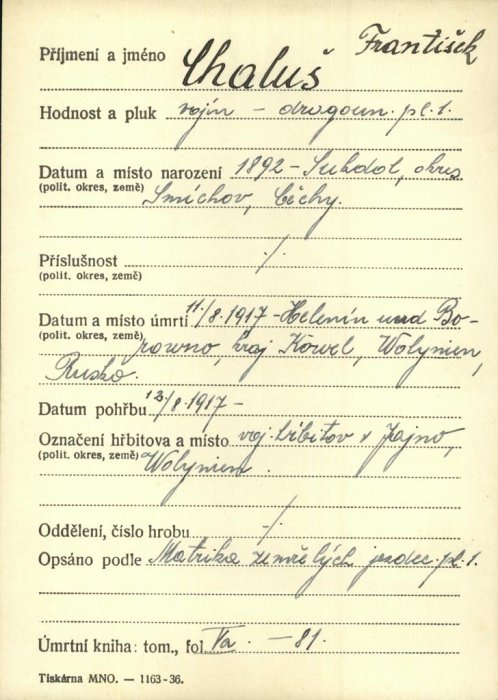 František
Příjmení a jméno Chaluš
Hodnost a pluk vojín – dragoun. pl. 1.
Datum a místo narození 1892 – Suhdol, okres
(polit. okres, země) Smíchov, Čechy.
Příslušnost ·/.
(polit. okres, země)
Datum a místo úmrtí 11/8.1917 – Helenín und Bo-
(polit. okres, země) rowno, kraj Kowel, Wolynien,
Rusko.
Datum pohřbu 12/8.1917 –
Označení hřbitova a místo voj. hřbitov v Jajno,
(polit. okres, země) Wolynien.
Oddělení, číslo hrobu ·/.
Opsáno podle Matrika zemřelých jezdec. pl. 1.
Úmrtní kniha: tom., fol. Va. – 81.
Tiskárna MNO. — 1163-36.